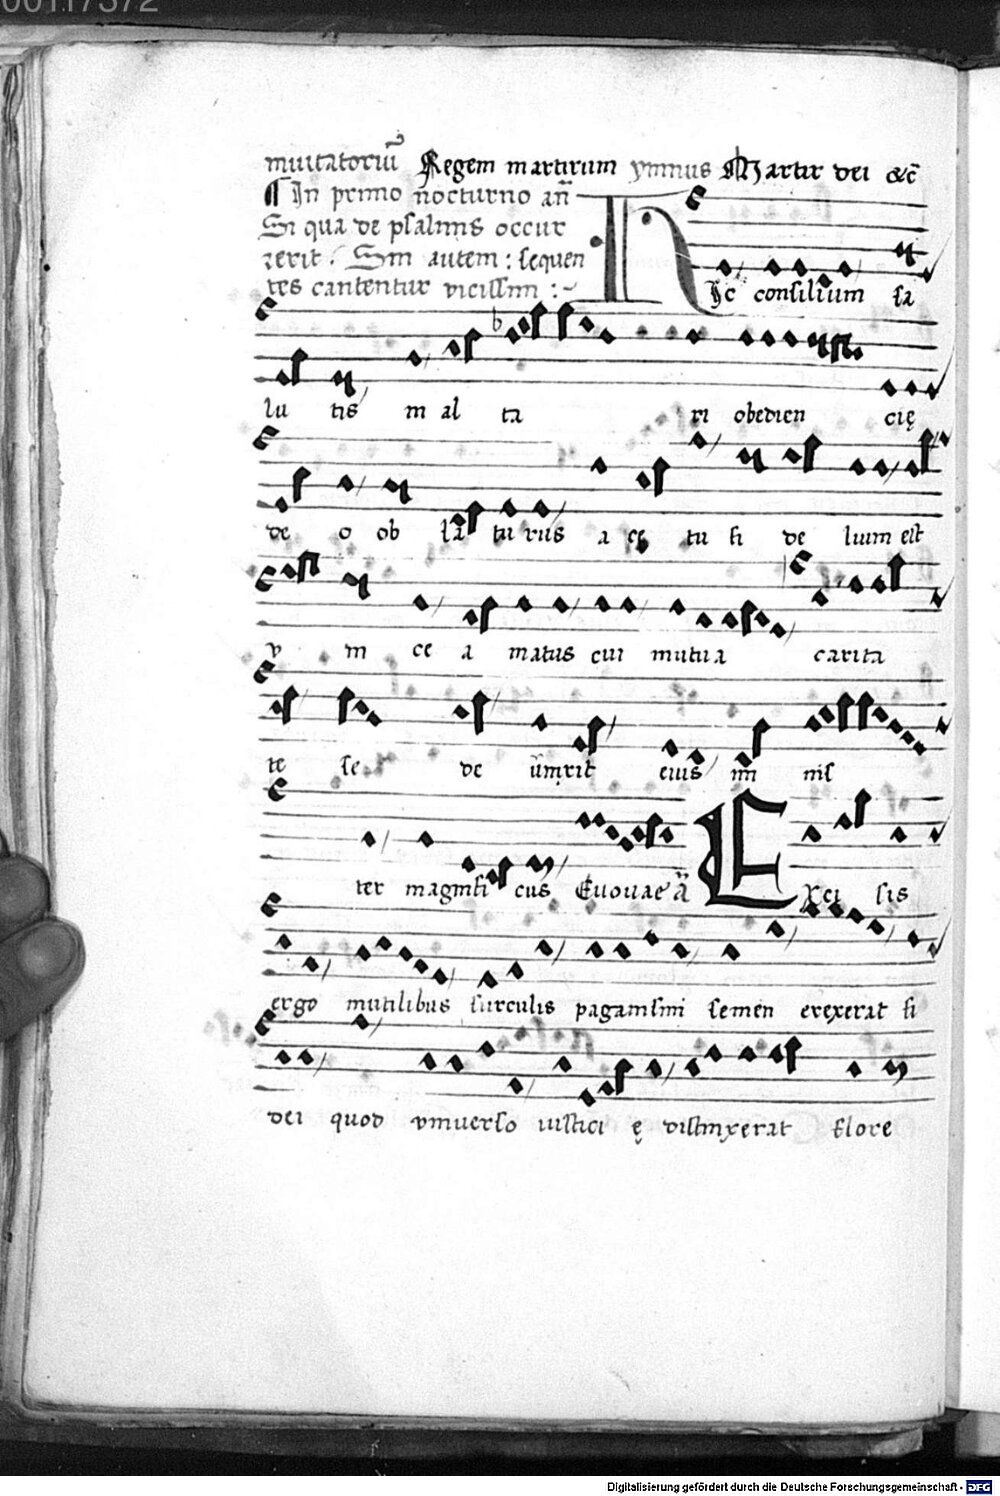 00117372
inuitatoriū Regem martirum ymnus Martir dei &c̄
¶ In primo nocturno an̄
Si qua de psalmis occur
rerit. Sin autem: sequen
tes cantentur vicissim :~
Hic consilium sa
lu tis mal ta ri obedien cię
de o ob la tu rus a cę tu fi de lium est
v in ce a matus cui mutua carita
te se de uinxit eius in nis
ter magnifi cus Euouae ā Exci sis
ergo inutilibus surculis paganismi semen erexerat fi
dei quod vniuerso iusticię distinxerat flore
Digitalisierung gefördert durch die Deutsche Forschungsgemeinschaft - DFG